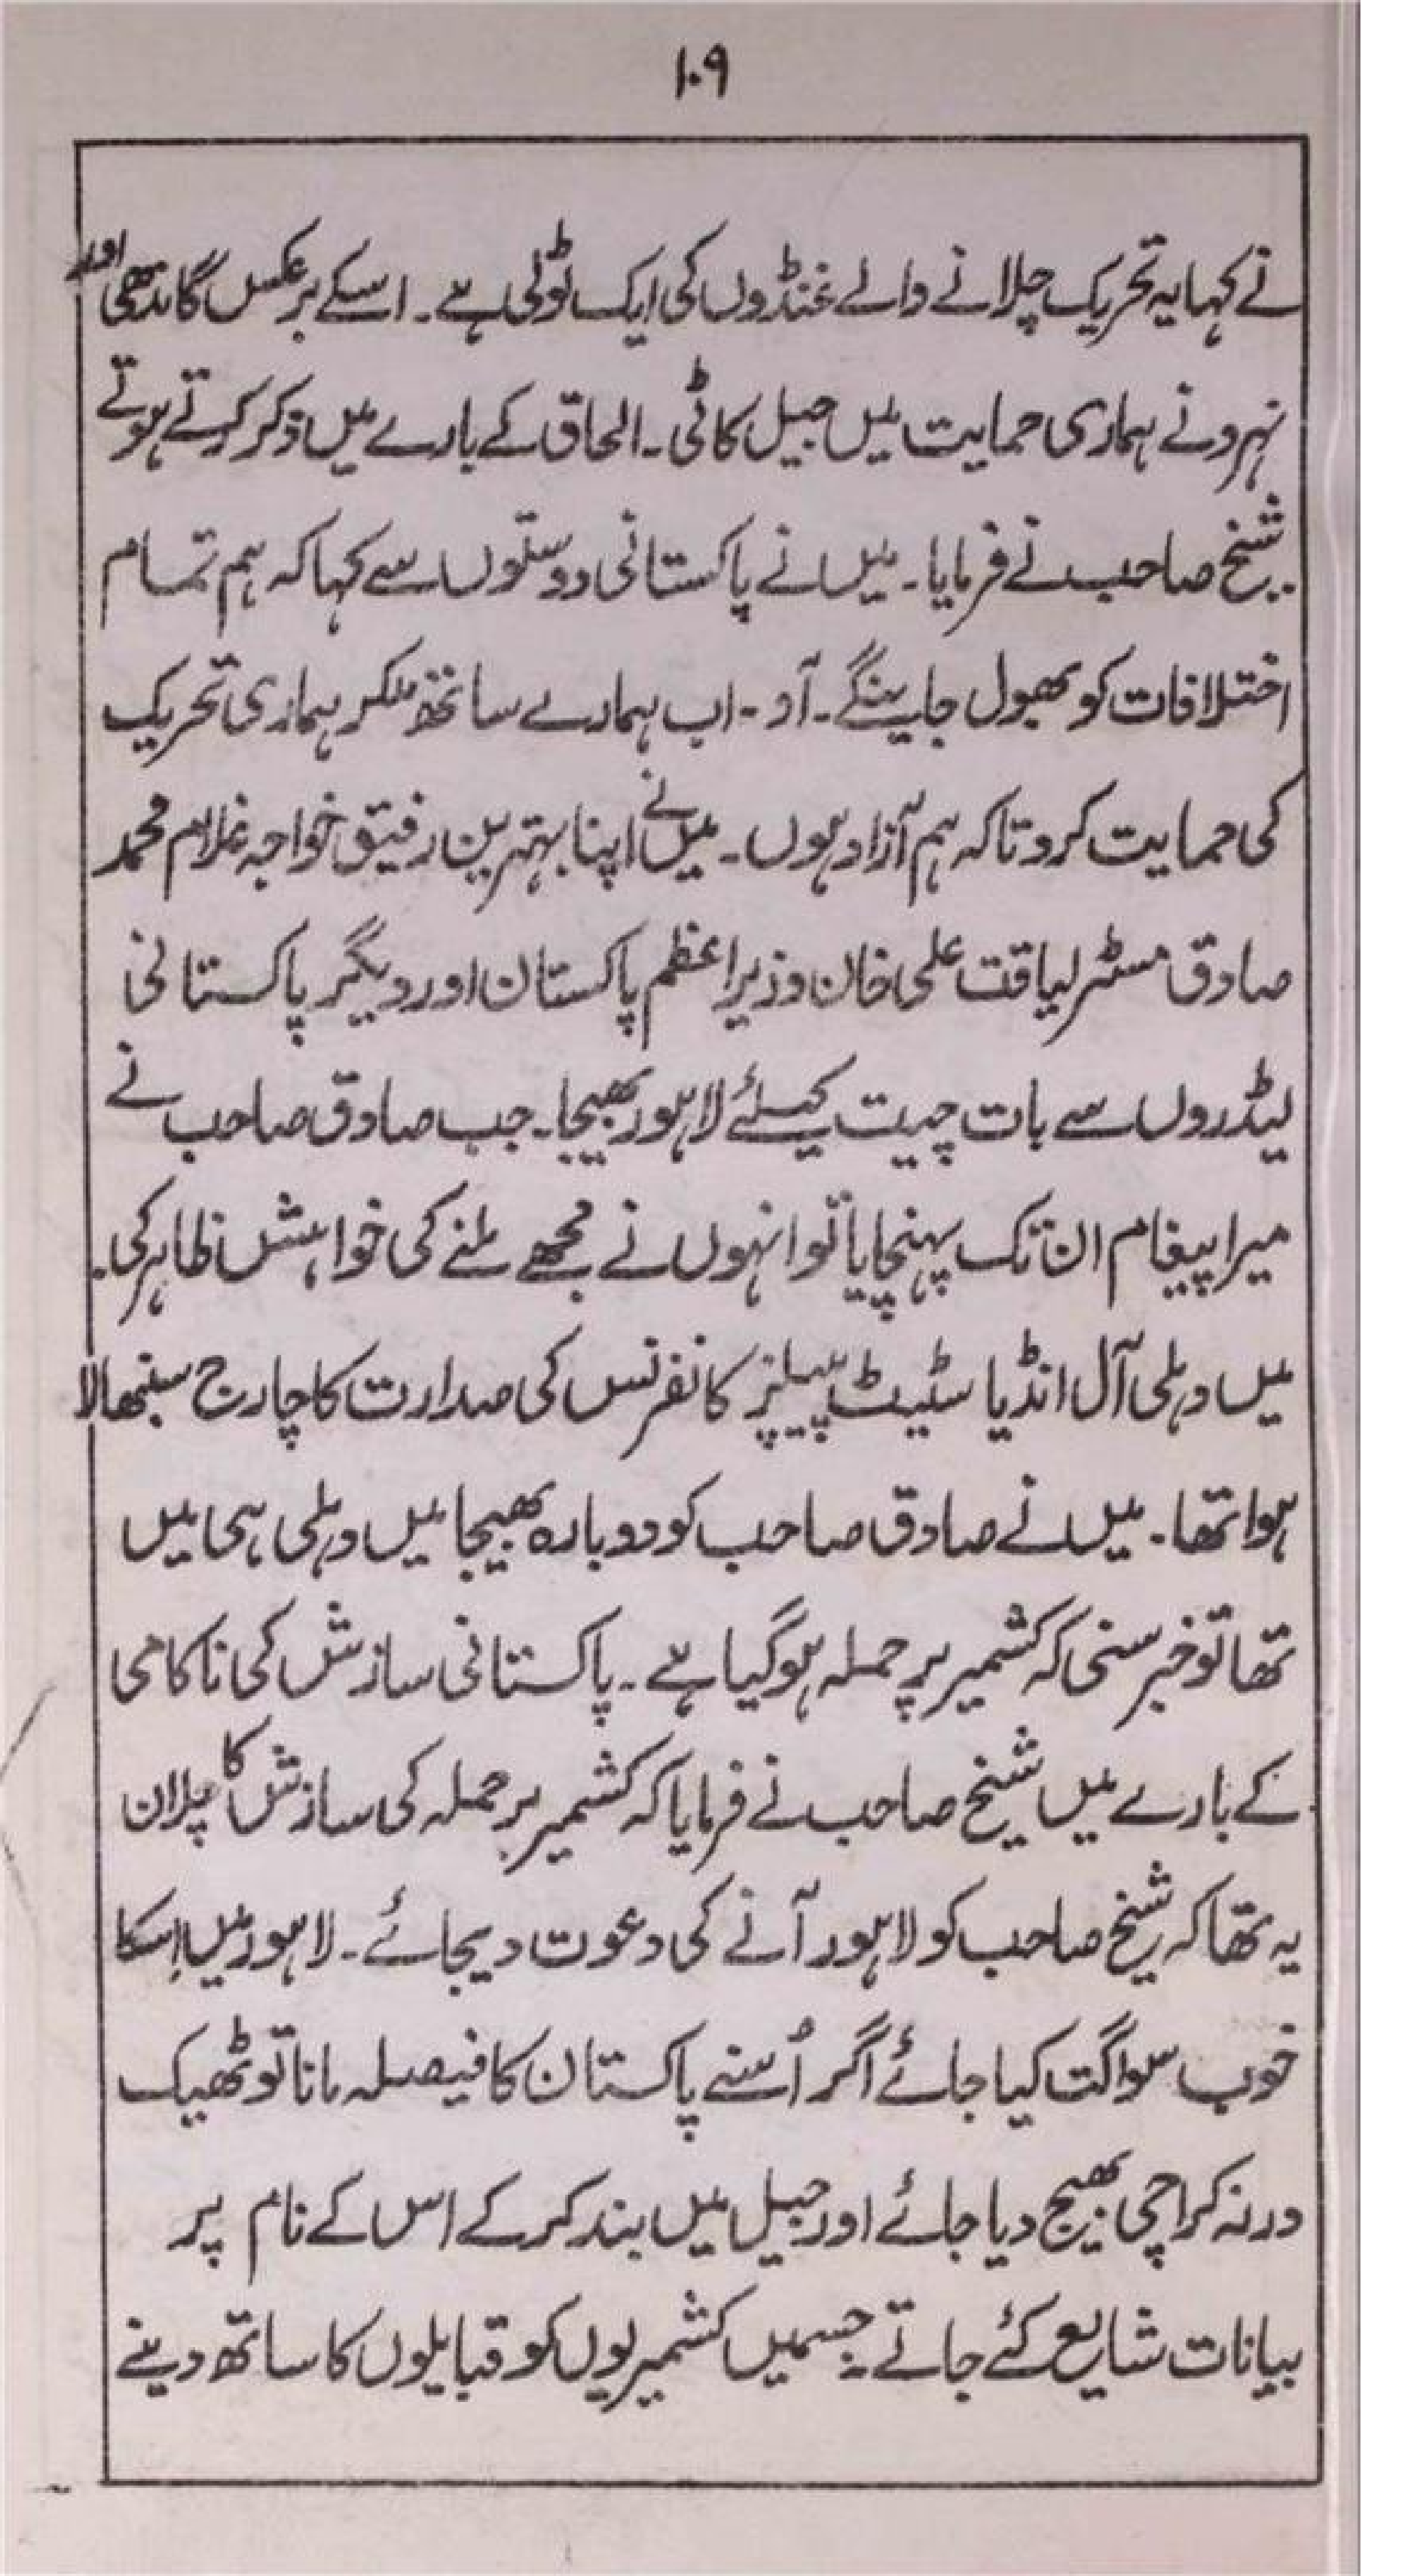 ۱۰۹
نے کہا یہ تحریک چلانے والے غنڈوں کی ایک ٹولی ہے۔ اسکے برعکس گاندھی اور
نہرو نے ہماری حمایت میں جیل کاٹی۔ الحاق کے بارے میں ذکر کرتے ہوتے
شیخ صاحب نے فرمایا۔ میں نے پاکستانی دوستوں سے کہا کہ ہم تمام
اختلافات کو بھول جاینگے۔ آو۔ اب ہمارے ساتھ ملکر ہماری تحریک
کی حمایت کرو تاکہ ہم آزاد ہوں۔ میں نے اپنا بہترین رفیق خواجہ غلام محمد
صادق مسٹر لیاقت علی خان وزیراعظم پاکستان اور دیگر پاکستانی
لیڈروں سے بات چیت کیلئے لاہور بھیجا۔ جب صادق صاحب نے
میرا پیغام ان تک پہنچایا تو انہوں نے مجھے ملنے کی خواہش ظاہر کی۔
میں دہلی آل انڈیا سٹیٹ پیپلز کانفرنس کی صدارت کا چارج سنبھالا
ہوا تھا۔ میں نے صادق صاحب کو دوبارہ بھیجا میں دہلی ہی میں
تھا تو خبر سنی کہ کشمیر پر حملہ ہو گیا ہے۔ پاکستانی سازش کی ناکامی
کے بارے میں شیخ صاحب نے فرمایا کہ کشمیر پر حملہ کی سازش کا پلان
یہ تھا کہ شیخ صاحب کو لاہور آنے کی دعوت دیجائے۔ لاہور میں اِسکا
خوب سواگت کیا جائے اگر اُسنے پاکستان کا فیصلہ مانا تو ٹھیک
ورنہ کراچی بھیج دیا جائے اور جیل میں بند کر کے اس کے نام پر
بیانات شایع کئے جاتے۔ جسمیں کشمیریوں کو قبایلوں کا ساتھ دینے